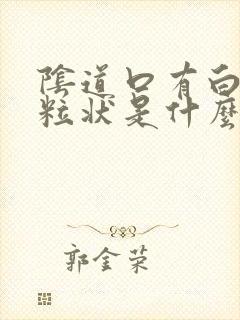 陰道口有白
粒狀是什麼
郭金荣